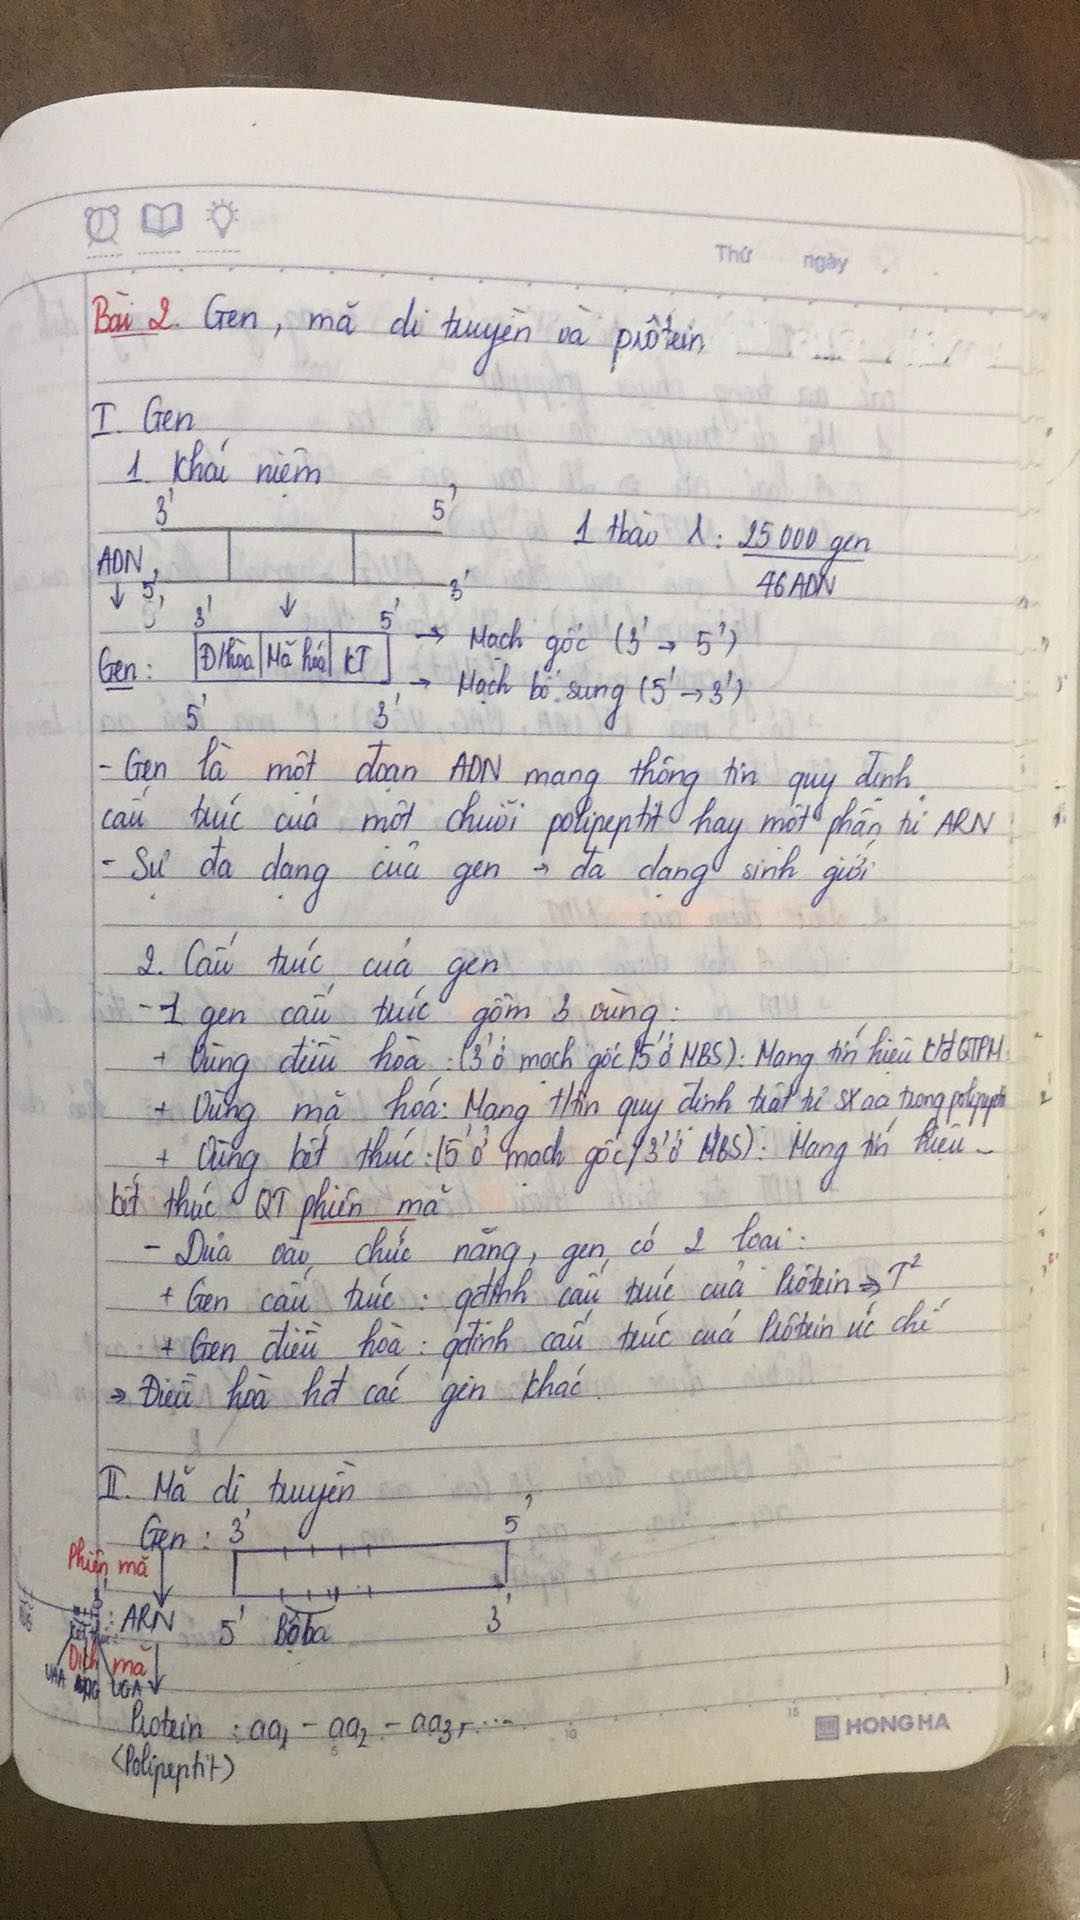 Thứ ngày
Bài 2. Gen, mã di truyền và prôtein
I. Gen
1. Khái niệm
3' 5'
1 tbào λ: 25000 gen
46 ADN
ADN
5' 3'
3' 5'
Gen: Đ/hòa Mã hoá KT
→ Mạch gốc (3' → 5')
→ Mạch bổ sung (5' → 3')
5' 3'
- Gen là một đoạn ADN mang thông tin quy định
cấu trúc của một chuỗi polipeptit hay một phân tử ARN
- Sự đa dạng của gen → đa dạng sinh giới
2. Cấu trúc của gen
- 1 gen cấu trúc gồm 3 vùng:
+ Vùng điều hòa: (3' ở mạch gốc/5' ở MBS): Mang tín hiệu KĐ QTPM
+ Vùng mã hoá: Mang ttin quy định trật tự SX aa trong polipeptit
+ Vùng kết thúc: (5' ở mạch gốc/3' ở MBS): Mang tín hiệu
kết thúc QT phiên mã
- Dựa vào chức năng, gen có 2 loại:
+ Gen cấu trúc: qđịnh cấu trúc của Prôtein => T²
+ Gen điều hoà: qđịnh cấu trúc của Prôtein ức chế
=> Điều hòa hđ các gen khác.
II. Mã di truyền
Gen: 3' 5'
Phiên mã
ARN 5' Bộ ba 3'
Dịch mã
UAA UAG UGA
Protein: aa1 - aa2 - aa3 - ...
(Polipeptit)
5 10 15
HONG HA